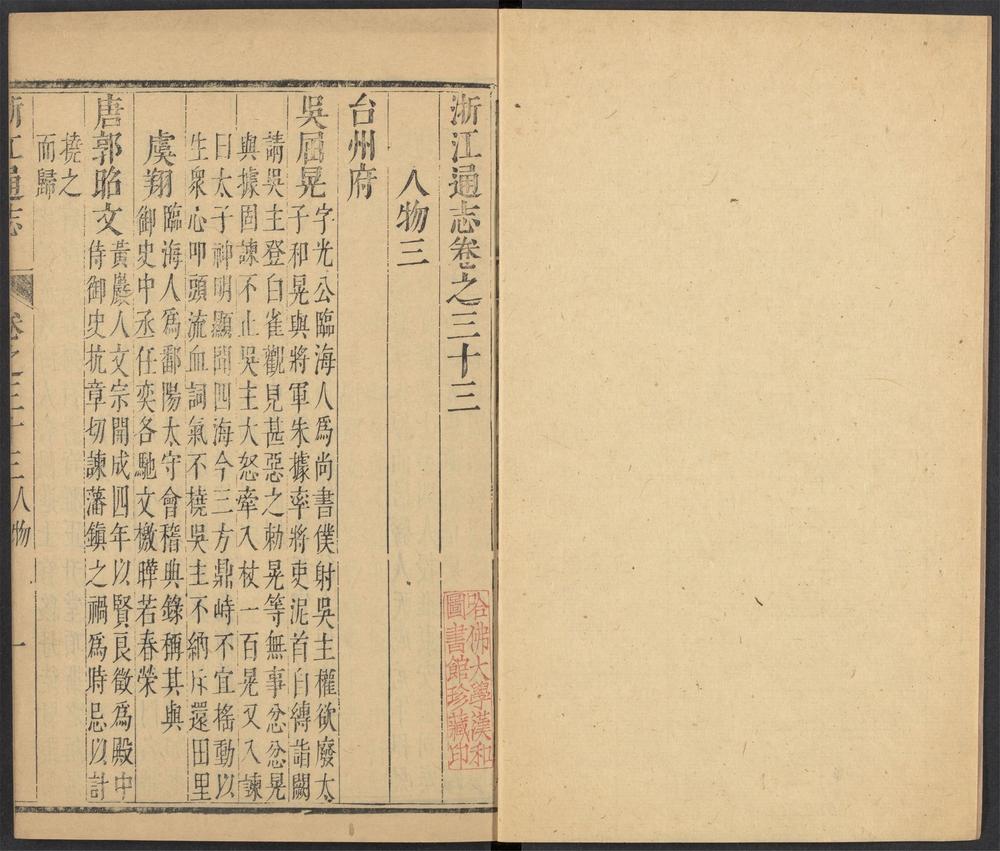 浙江通志卷之三十三
人物三
台州府
吳屈晃字光公臨海人爲尚書僕射吳主權欲廢太
子和晃與將軍朱據率將吏泥首自縛詣闕
請吳主登白雀觀見甚惡之勑晃等無事忿忿晃
與據固諫不止吳主大怒牽入杖一百晃又入諫
曰太子神明顯聞四海今三方鼎峙不宜搖動以
生衆心叩頭流血詞氣不撓吳主不納斥還田里
虞翔臨海人爲鄱陽太守會稽典錄稱其與
御史中丞任奕各馳文檄曄若春榮
唐郭昭文黃巖人文宗開成四年以賢良徵爲殿中
侍御史抗章切諫藩鎮之禍爲時忌以計
撓之
而歸
浙江通志
卷之三十三人物
一
哈佛大學漢和
圖書館珍藏印